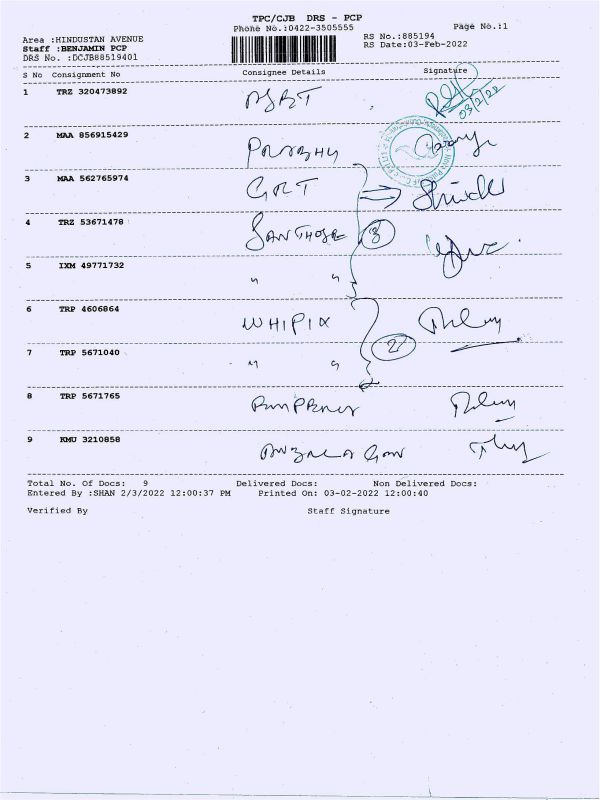 TPC/CJB DRS - PCP
Phone No.:0422-3505555
Page No.:1
Area :HINDUSTAN AVENUE
RS No.:885194
Staff :BENJAMIN PCP
RS Date:03-Feb-2022
DRS No. :DCJB88519401
S No Consignment No Consignee Details Signature
1 TRZ 320473892
03/2/22
2 MAA 856915429 PRABHU
3 MAA 562765974 GRT
4 TRZ 53671478 SANTHOSE 3
5 IXM 49771732 " "
6 TRP 4606864 WHIPIX
7 TRP 5671040 " " 2
8 TRP 5671765
9 KMU 3210858
Total No. Of Docs: 9 Delivered Docs: Non Delivered Docs:
Entered By :SHAN 2/3/2022 12:00:37 PM Printed On: 03-02-2022 12:00:40
Verified By Staff Signature